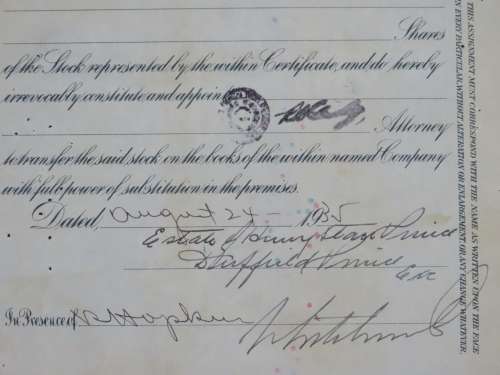 Shares
of the Stock represented by the within Certificate, and do hereby
irrevocably constitute and appoint
Attorney
to transfer the said stock on the books of the within named Company
with full power of substitution in the premises.
Dated, August 24 - 1935
Estate of Henry
Duffield Prince
Exr
In Presence of Hopkins
THIS ASSIGNMENT MUST CORRESPOND WITH THE NAME AS WRITTEN UPON THE FACE
IN EVERY PARTICULAR, WITHOUT ALTERATION OR ENLARGEMENT OR ANY CHANGE WHATEVER.